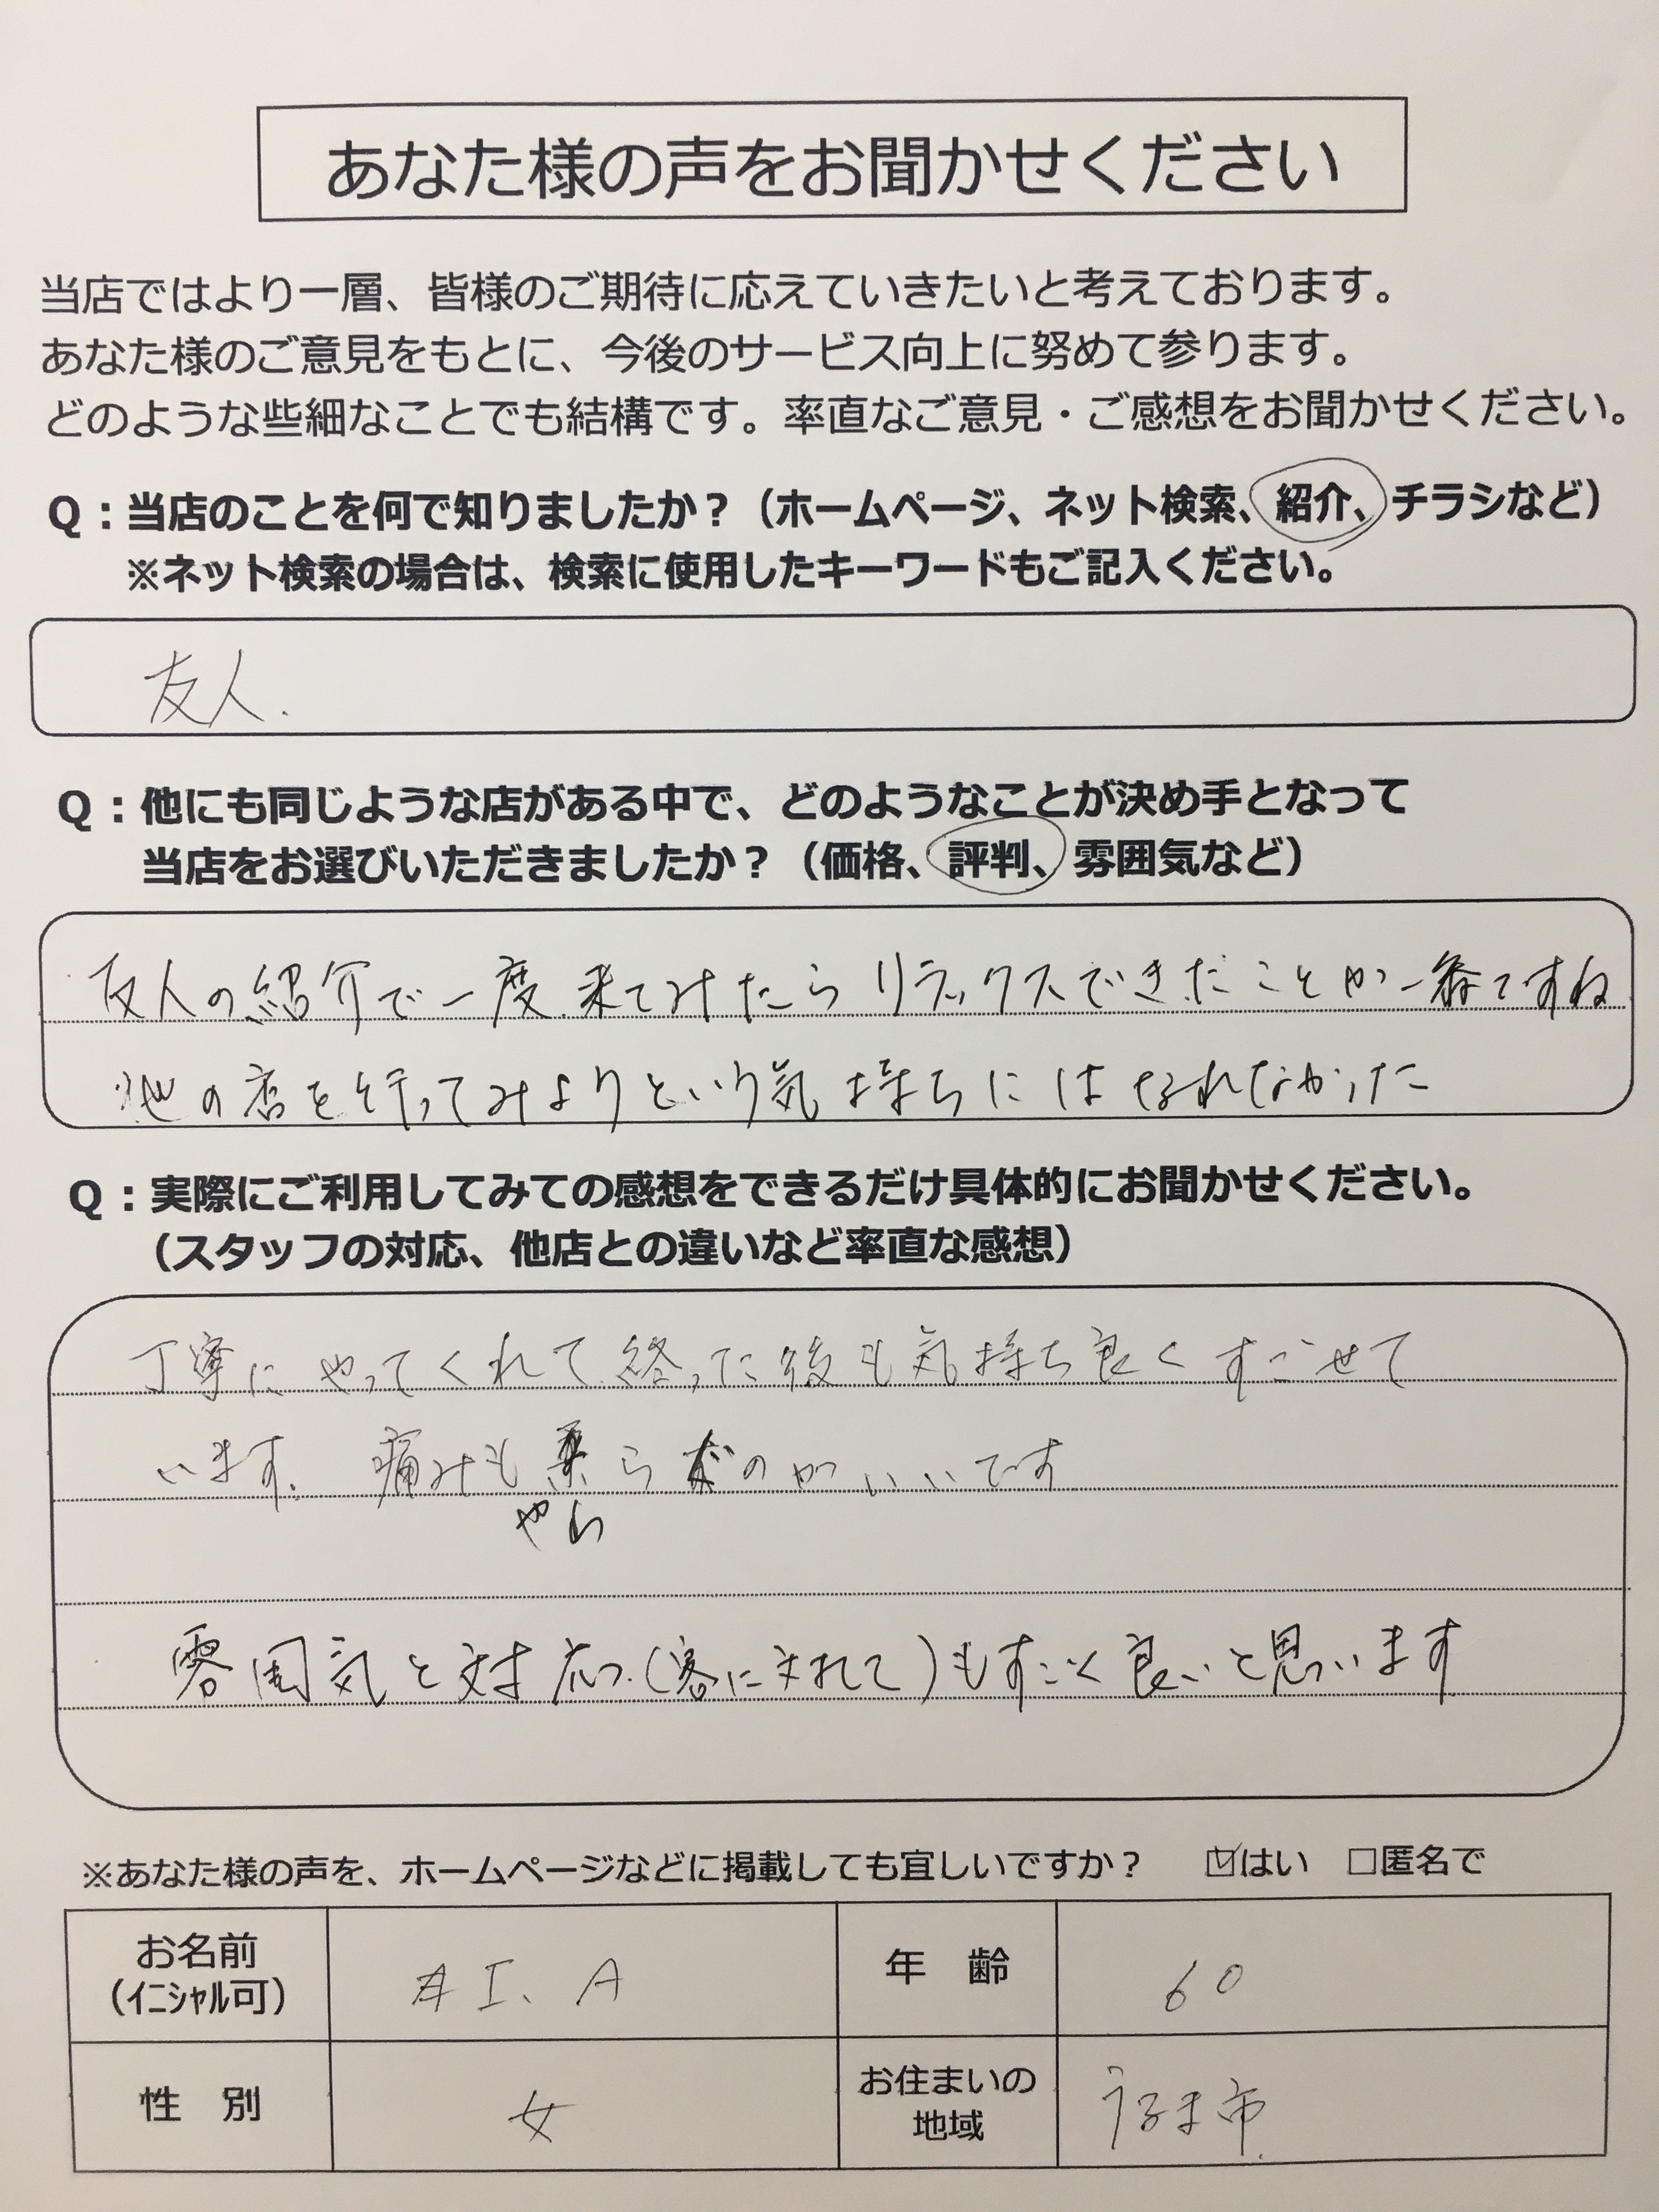 あなた様の声をお聞かせください
当店ではより一層、皆様のご期待に応えていきたいと考えております。
あなた様のご意見をもとに、今後のサービス向上に努めて参ります。
どのような些細なことでも結構です。率直なご意見・ご感想をお聞かせください。
Q：当店のことを何で知りましたか？（ホームページ、ネット検索、紹介、チラシなど）
※ネット検索の場合は、検索に使用したキーワードもご記入ください。
友人.
Q：他にも同じような店がある中で、どのようなことが決め手となって
当店をお選びいただきましたか？（価格、評判、雰囲気など）
友人の紹介で一度来てみたらリラックスできたことが一番ですね
他の店を行ってみよりという気持ちにはなれなかった
Q：実際にご利用してみての感想をできるだけ具体的にお聞かせください。
（スタッフの対応、他店との違いなど率直な感想）
丁寧にやってくれて終った後も気持ち良くすごせて
います. 痛みも柔らぐのがいいです
やわ
雰囲気と対応（客に対して）もすごく良いと思います
※あなた様の声を、ホームページなどに掲載しても宜しいですか？ ☑はい □匿名で
お名前 I. A 年 齢 60
（ｲﾆｼｬﾙ可）
性 別 女 お住まいの地域 うるま市.